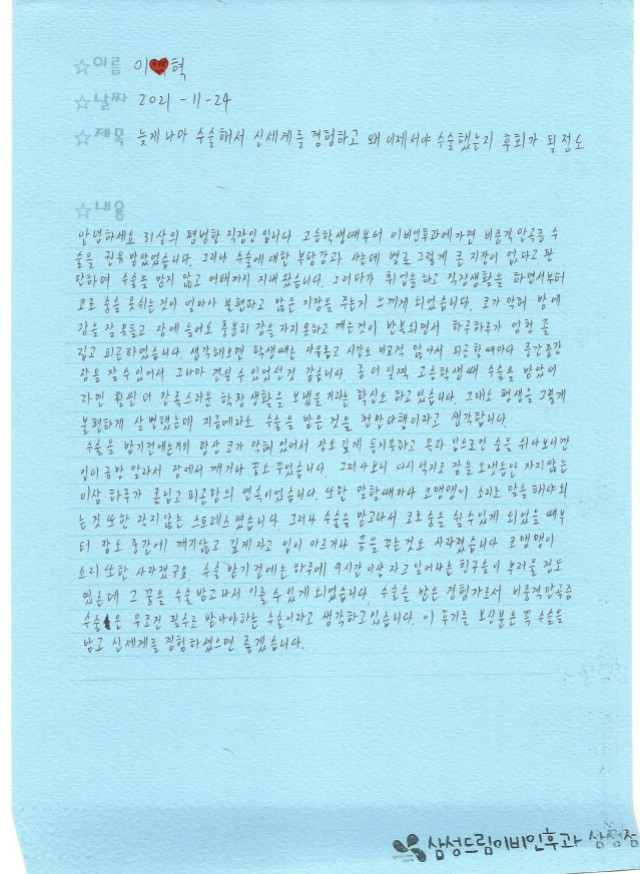 ☆이름 이♥혁
☆날짜 2021-11-24
☆제목 늦게나마 수술해서 신세계를 경험하고 왜 이제서야 수술했는지 후회가 될정도
☆내용
안녕하세요 31살의 평범한 직장인입니다 고등학생때부터 이비인후과에가면 비중격만곡증 수
술을 권유받았었습니다. 그러나 수술에 대한 부담감과 사는데 별로 그렇게 큰 지장이 없다고 판
단하여 수술을 받지 않고 여태까지 지내왔습니다. 그러다가 취업을하고 직장생활을 하면서부터
코로 숨을 못쉬는것이 얼마나 불편하고 많은 지장을 주는지 느끼게 되었습니다. 코가 막혀 밤에
잠을 잘 못들고 잠에 들어도 충분히 잠을 자지못하고 깨는것이 반복되면서 하루하루가 엄청 졸
립고 피곤하였습니다. 생각해보면 학생때는 자유롭고 시간도 비교적 많아서 피곤할때마다 중간중간
잠을 잘수있어서 그나마 견딜 수 있었던것 같습니다. 좀 더 일찍 고등학생때 수술을 받았더
라면 훨씬 더 만족스러운 학창생활을 보냈을 거라는 확신도 하고있습니다. 그래도 평생을 그렇게
불편하게 살 뻔했는데 지금에라도 수술을 받은 것을 천만다행이라고 생각합니다.
수술을 받기전에는거의 항상 코가 막혀있어서 잠도 깊게 들지못하고 목과 입으로만 숨을 쉬다보니깐
입이 금방 말라서 잠에서 깨거나 꿈도 꾸었습니다 그러다보니 다시 억지로 잠을 오랫동안 자지않는
이상 하루가 졸립고 피곤함의 연속이었습니다. 또한 말할때마다 코맹맹이 소리로 말을 해야되
는것 또한 작지않는 스트레스였습니다. 그러나 수술을받고나서 코로숨을 쉴수있게 되었을 때부
터 잠도 중간에 깨지않고 깊게자고 입이 마르거나 꿈을 꾸는것도 사라졌습니다 코맹맹이
소리 또한 사라졌구요. 수술 받기전에는 하루에 9시간이상 자고일어나는 친구들이 부러울 정도
였는데 그 꿈을 수술받고나서 이룰 수 있게 되었습니다. 수술을 받은 경험자로서 비중격만곡증
수술은 무조건 필수로 받아야하는 수술이라고 생각하고있습니다. 이 후기를 보신분은 꼭 수술을
받고 신세계를 경험하셨으면 좋겠습니다.
삼성드림이비인후과 삼성점